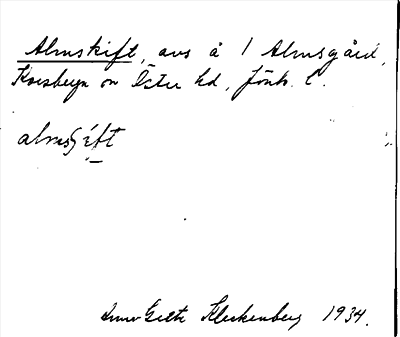 Almskift, avs å 1 Almsgård,
Korsberga sn Östra hd, Jönk. l.
almsʃéft
Anna Greta Kleckenberg 1934.